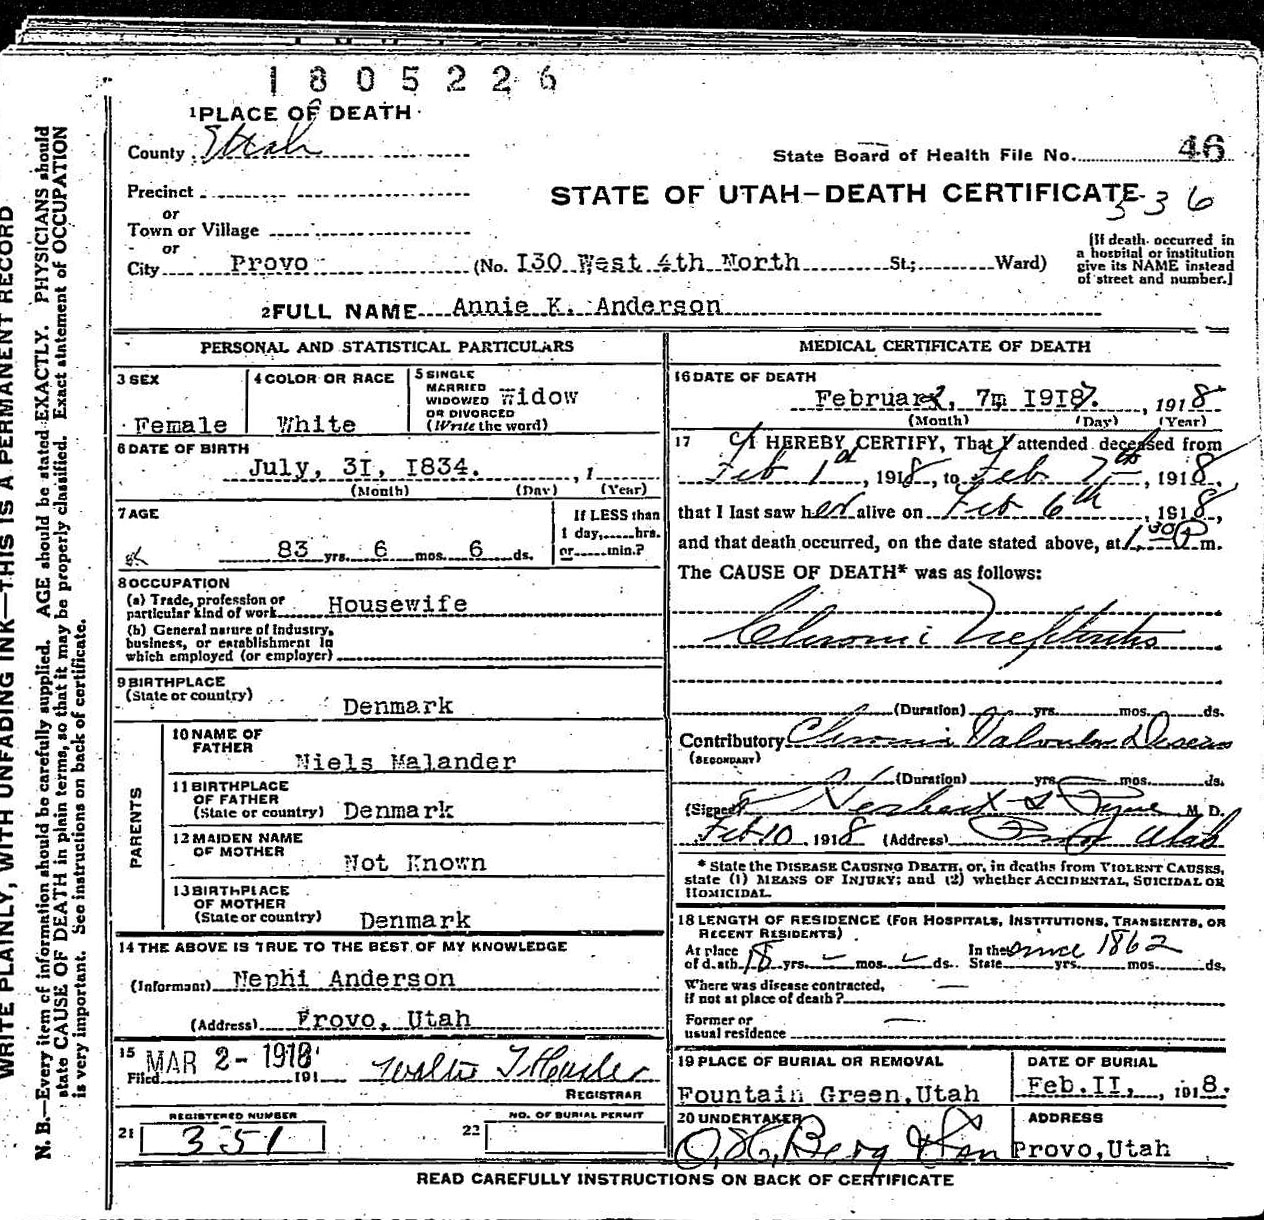 1805226
1 PLACE OF DEATH
County Utah
State Board of Health File No. 46
Precinct
STATE OF UTAH—DEATH CERTIFICATE
336
or
Town or Village
or
City Provo (No. I30 West 4th North St.; Ward)
[If death occurred in
a hospital or institution
give its NAME instead
of street and number.]
2 FULL NAME Annie K. Anderson
PERSONAL AND STATISTICAL PARTICULARS
3 SEX
Female
4 COLOR OR RACE
White
5 SINGLE
MARRIED
WIDOWED Widow
OR DIVORCED
(Write the word)
6 DATE OF BIRTH
July, 3I, I834. , 1
(Month) (Day) (Year)
7 AGE
If LESS than
1 day,......hrs.
or......min.?
83 yrs. 6 mos. 6 ds.
8 OCCUPATION
(a) Trade, profession or
particular kind of work Housewife
(b) General nature of industry,
business, or establishment in
which employed (or employer)
9 BIRTHPLACE
(State or country)
Denmark
PARENTS
10 NAME OF
FATHER
Niels Malander
11 BIRTHPLACE
OF FATHER
(State or country) Denmark
12 MAIDEN NAME
OF MOTHER
Not Known
13 BIRTHPLACE
OF MOTHER
(State or country)
Denmark
14 THE ABOVE IS TRUE TO THE BEST OF MY KNOWLEDGE
(Informant) Nephi Anderson
(Address) Provo, Utah
15 MAR 2- 1918
Filed 191
REGISTRAR
REGISTERED NUMBER
21 351
NO. OF BURIAL PERMIT
22
MEDICAL CERTIFICATE OF DEATH
16 DATE OF DEATH
February, 7m I9I8. , 1918
(Month) (Day) (Year)
17 I HEREBY CERTIFY, That I attended deceased from
Feb 1st, 1918, to Feb 7th, 1918,
that I last saw her alive on Feb 6th, 1918,
and that death occurred, on the date stated above, at 1,30 P m.
The CAUSE OF DEATH* was as follows:
Chronic Nephritis
(Duration) yrs. mos. ds.
Contributory Chronic Valvular Disease
(SECONDARY)
(Duration) yrs. mos. ds.
(Signed) M. D.
Feb 10 1918 (Address) Provo Utah
* State the DISEASE CAUSING DEATH, or, in deaths from VIOLENT CAUSES,
state (1) MEANS OF INJURY; and (2) whether ACCIDENTAL, SUICIDAL OR
HOMICIDAL.
18 LENGTH OF RESIDENCE (FOR HOSPITALS, INSTITUTIONS, TRANSIENTS, OR
RECENT RESIDENTS)
At place In the since 1862
of death 18 yrs. – mos. – ds. State yrs. mos. ds.
Where was disease contracted,
if not at place of death? —
Former or
usual residence —
19 PLACE OF BURIAL OR REMOVAL
Fountain Green, Utah
DATE OF BURIAL
Feb. II, , 1918.
20 UNDERTAKER
Berg & Son
ADDRESS
Provo, Utah
READ CAREFULLY INSTRUCTIONS ON BACK OF CERTIFICATE
WRITE PLAINLY, WITH UNFADING INK—THIS IS A PERMANENT RECORD
N. B.—Every item of information should be carefully supplied. AGE should be stated EXACTLY. PHYSICIANS should
state CAUSE OF DEATH in plain terms, so that it may be properly classified. Exact statement of OCCUPATION
is very important. See instructions on back of certificate.